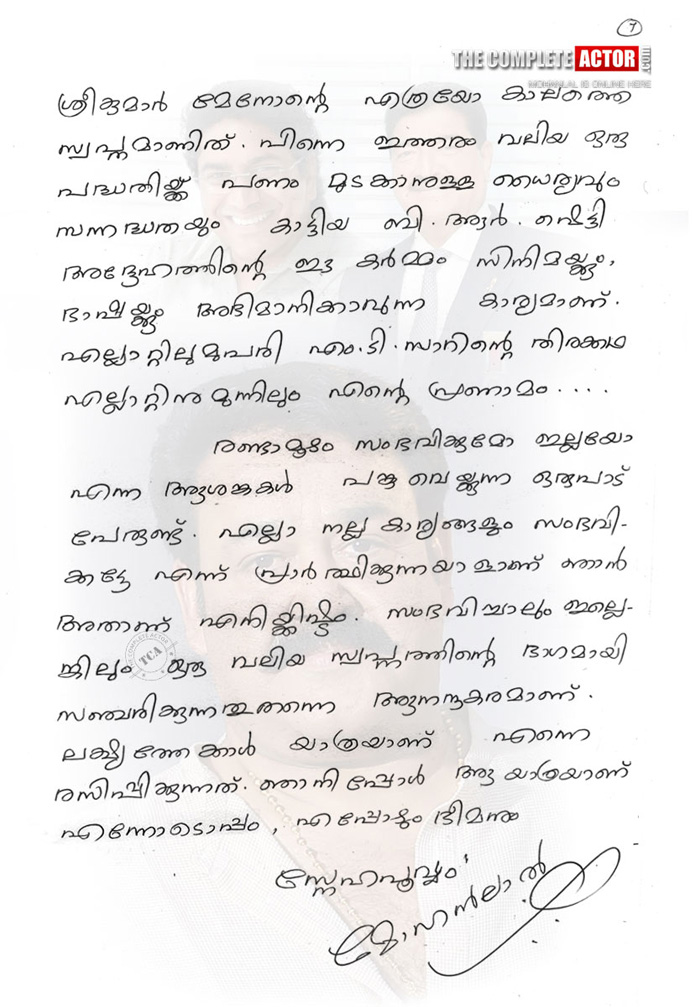 7
THE COMPLETE ACTOR .com
MOHANLAL IS ONLINE HERE
ശ്രീകുമാർ മേനോന്റെ എത്രയോ കാലത്തെ
സ്വപ്നമാണിത്. പിന്നെ ഇത്തരം വലിയ ഒരു
പദ്ധതിയ്ക്ക് പണം മുടക്കാനുള്ള ധൈര്യവും
സന്നദ്ധതയും കാട്ടിയ ബി. ആർ. ഷെട്ടി
അദ്ദേഹത്തിന്റെ ഈ കർമ്മം സിനിമയ്ക്കും,
ഭാഷയ്ക്കും അഭിമാനിക്കാവുന്ന കാര്യമാണ്.
എല്ലാറ്റിലുമുപരി എം.ടി. സാറിന്റെ തിരക്കഥ
എല്ലാറ്റിനുമുന്നിലും എന്റെ പ്രണാമം ....
രണ്ടാമൂഴം സംഭവിക്കുമോ ഇല്ലയോ
എന്ന ആശങ്കകൾ പങ്കുവെയ്ക്കുന്ന ഒരുപാട്
പേരുണ്ട്. എല്ലാ നല്ല കാര്യങ്ങളും സംഭവി-
ക്കട്ടേ എന്ന് പ്രാർത്ഥിക്കുന്നയാളാണ് ഞാൻ
അതാണ് എനിയ്ക്കിഷ്ടം. സംഭവിച്ചാലും ഇല്ലെ-
ങ്കിലും ഒരു വലിയ സ്വപ്നത്തിന്റെ ഭാഗമായി
സഞ്ചരിക്കുന്നതുതന്നെ ആനന്ദകരമാണ്.
ലക്ഷ്യത്തേക്കാൾ യാത്രയാണ് എന്നെ
രസിപ്പിക്കുന്നത്. ഞാനിപ്പോൾ ആ യാത്രയാണ്
എന്നോടൊപ്പം, എപ്പോഴും ഭീമനും
THE COMPLETE ACTOR
TCA
സ്നേഹപൂർവ്വം
മോഹൻലാൽ